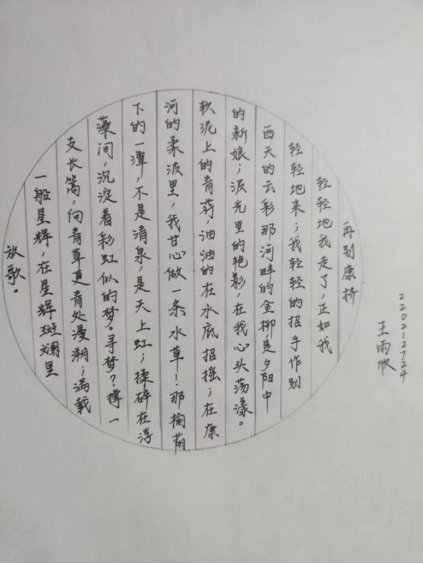 再别康桥
轻轻地我走了，正如我
轻轻地来；我轻轻的招手作别
西天的云彩那河畔的金柳，是夕阳中
的新娘；波光里的艳影，在我心头荡漾。
软泥上的青荇，油油的在水底招摇；在康
河的柔波里，我甘心做一条水草！那榆荫
下的一潭，不是清泉，是天上虹；揉碎在浮
藻间，沉淀着彩虹似的梦。寻梦？撑一
支长篙，向青草更青处漫溯；满载
一船星辉，在星辉斑斓里
放歌。
王雨
220212724